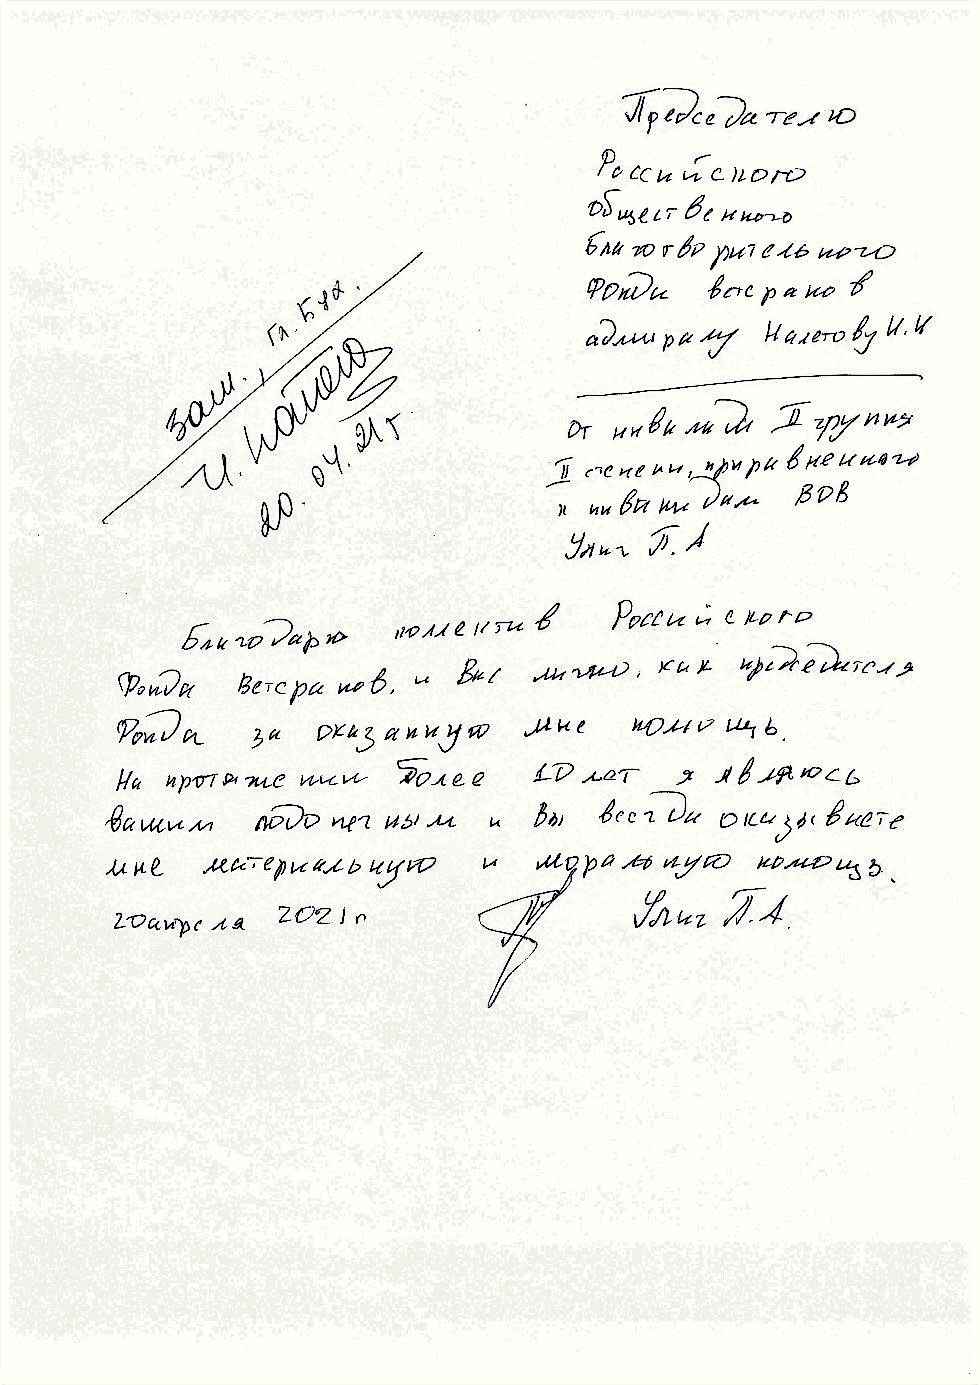 Председателю
Российского
общественного
Благотворительного
Фонда ветеранов
адмиралу Налетову И.И
зам., гл. Бух.
И. Налетов
20.04.21г
От инвалида II группы
II степени, приравненного
к инвалидам ВОВ
П. А
Благодарю коллектив Российского
Фонда Ветеранов, и Вас лично, как председателя
Фонда за оказанную мне помощь.
На протяжении более 10 лет я являюсь
вашим подопечным и Вы всегда оказываете
мне материальную и моральную помощь.
20 апреля 2021г П. А.